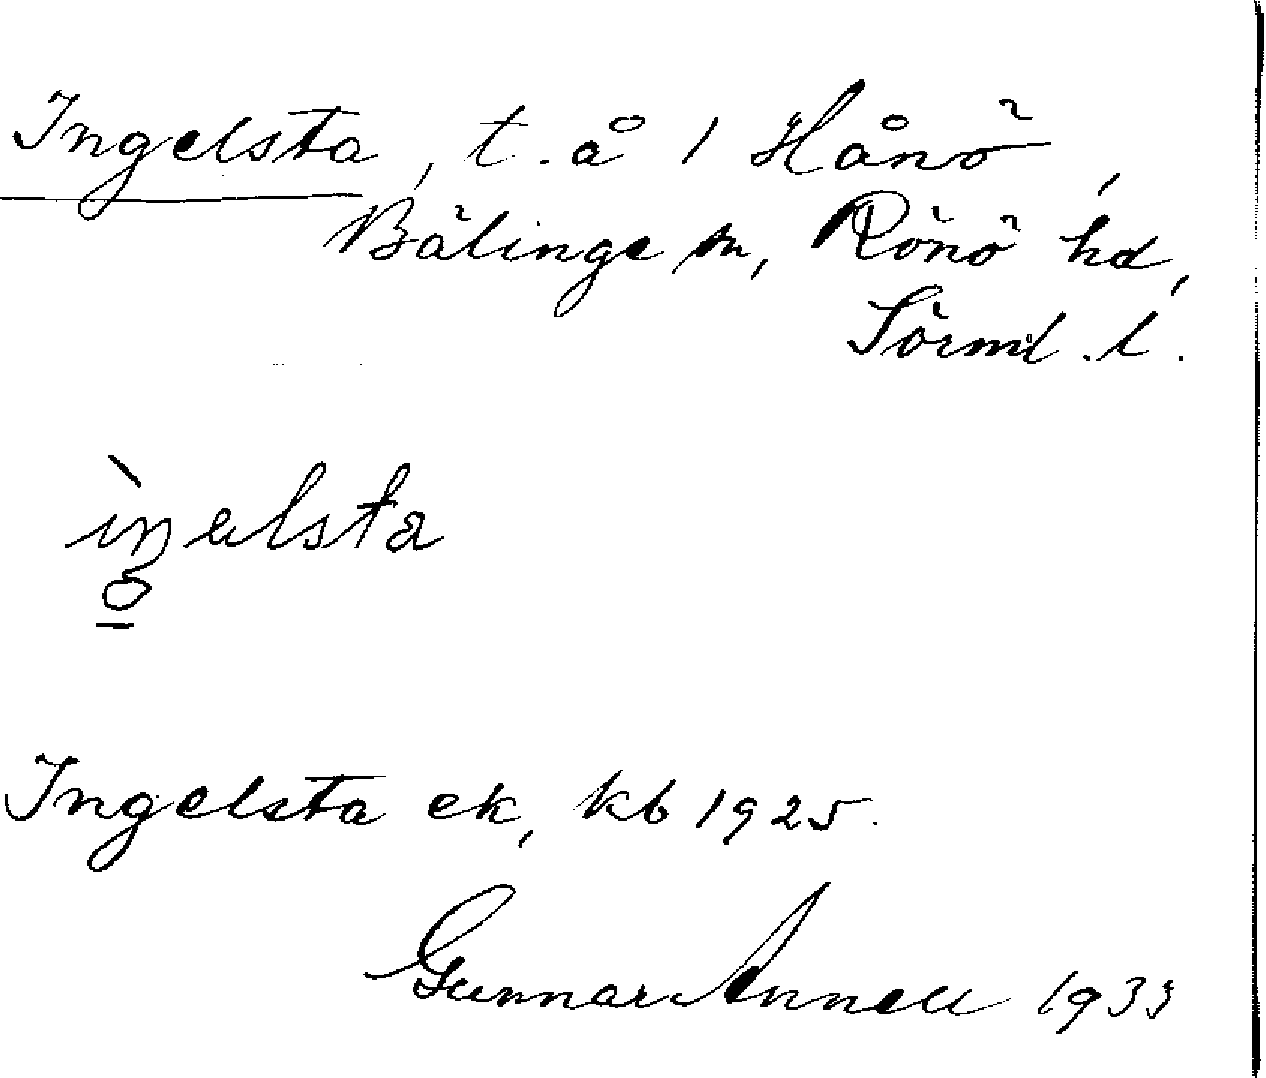 Ingelsta, t. å / Hånö,
Bälinge sn, Rönö hd,
Sörml. l.
iŋelsta
Ingelsta ek, kb 1925.
Gunnar Annell 1933